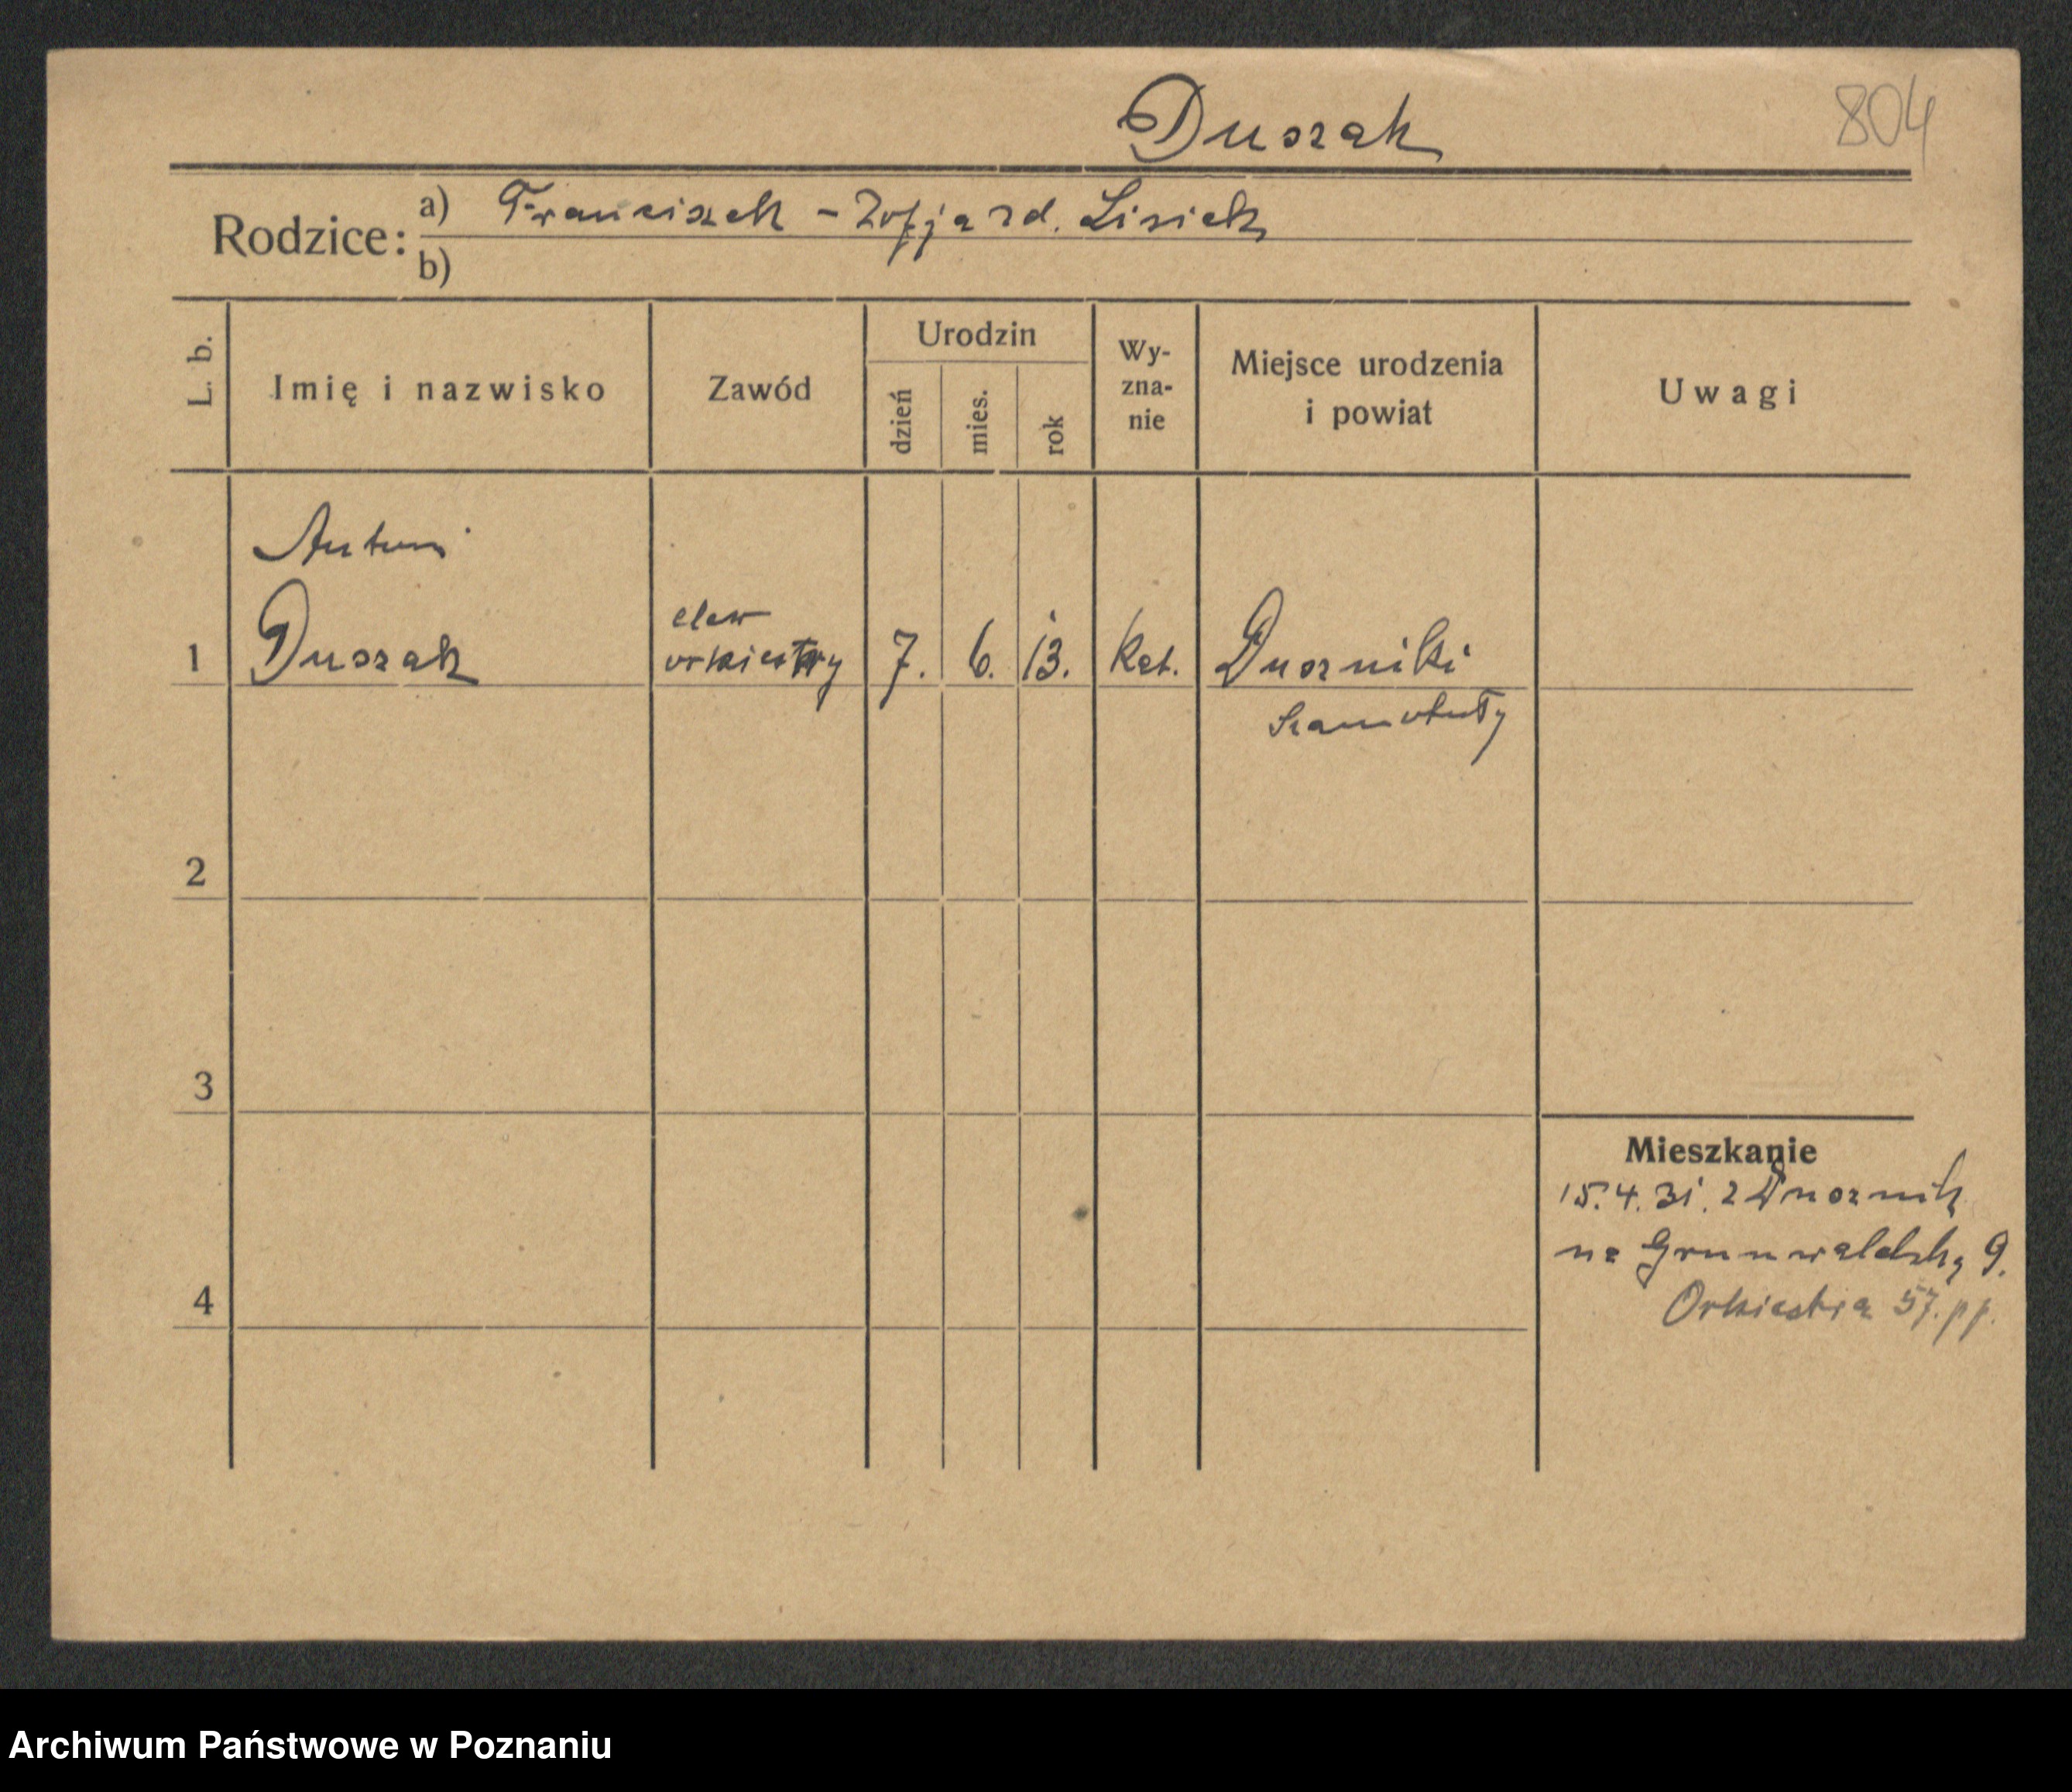 Duszak
804
Rodzice:
a) Franciszek - Zofja zd. Lisiek
b)
L. b.
Imię i nazwisko
Zawód
Urodzin
dzień
mies.
rok
Wy-
zna-
nie
Miejsce urodzenia
i powiat
Uwagi
Antoni
1 Duszak
elew
orkiestry
7. 6. 13. kat. Duszniki
Szamotuły
2
3
4
Mieszkanie
15.4.31. z Dusznik
na Grunwaldzką 9.
Orkiestra 57. pp.
Archiwum Państwowe w Poznaniu